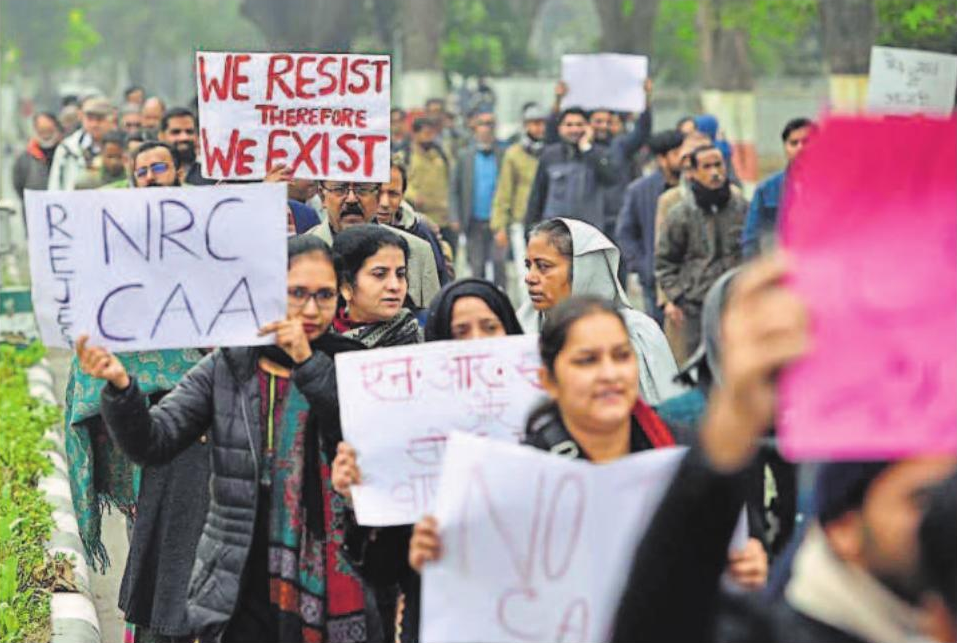 WE RESIST
THEREFORE
WE EXIST
REJECT
NRC
CAA
एन. आर.
और
NO
CA